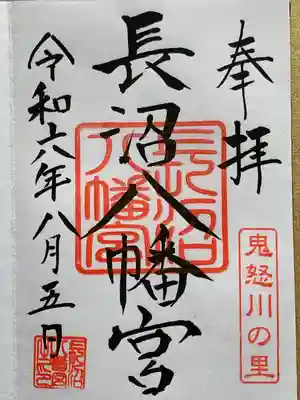 奉拝
長沼八幡宮
長沼
八幡宮
令和六年八月五日
鬼怒川の里